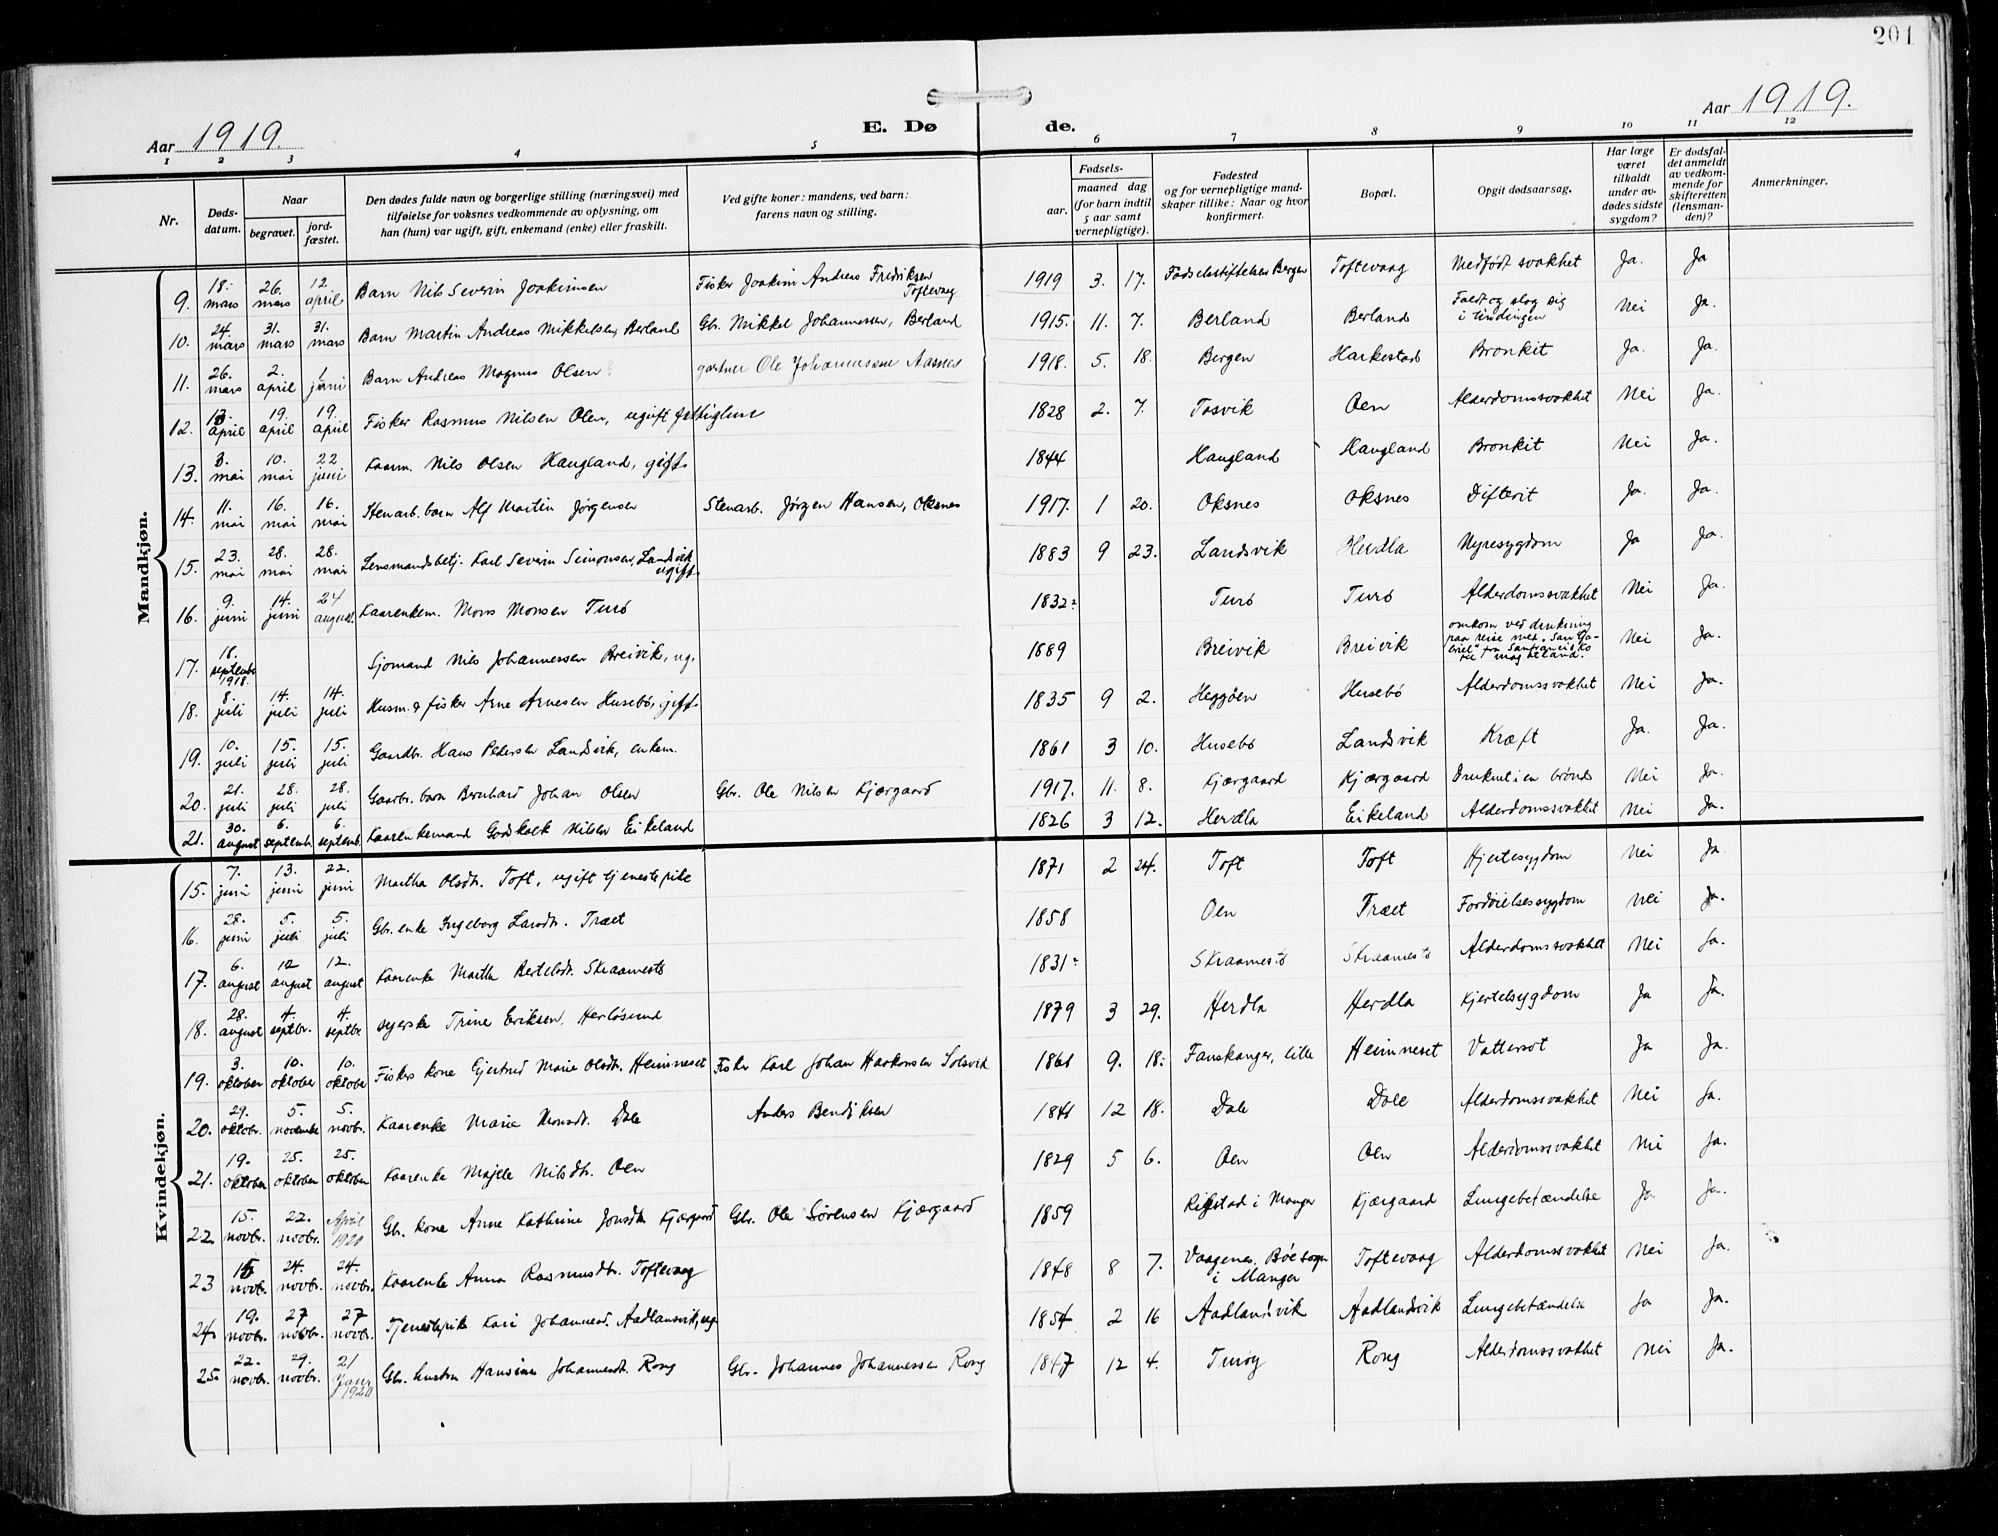 201
Aar 1919. E. Døde. Aar 1919.
1 2 3 4 5 6 7 8 9 10 11 12
Nr. Døds-datum. Naar begravet. jord-fæstet. Den dødes fulde navn og borgerlige stilling (næringsvei) med tilføielse for voksnes vedkommende av oplysning, om han (hun) var ugift, gift, enkemand (enke) eller fraskilt. Ved gifte koner: mandens, ved barn: farens navn og stilling. Fødsels- aar. maaned dag (for barn indtil 5 aar samt vernepligtige). Fødested og for vernepligtige mand-skaper tillike: Naar og hvor konfirmert. Bopæl. Opgit dødsaarsag. Har læge været tilkaldt under av-dødes sidste sygdom? Er dødsfal-det anmeldt av vedkom-mende for skifteretten (lensman-den)? Anmerkninger.
Mandkjøn.
9. 18. mars 26. mars 12. april Barn Nils Severin Joakimsen Fisker Joakim Andreas Fredriksen Toftevaag 1919 3. 17. Fødselsstiftelsen Bergen Toftevaag Medfødt svakhet Ja. Ja
10. 24. mars 31. mars 31. mars Barn Martin Andreas Mikkelsen, Berland Gbr. Mikkel Johannessen, Berland 1915. 11. 7. Berland Berland Faldt og slog sig i tindingen Nei Ja.
11. 26. mars 2. april 1. juni Barn Andreas Magnus Olsen gartner Ole Johannessen Aasnes 1918. 5. 18. Bergen Harkestad Bronkit Ja. Ja.
12. 13. april 19. april 19. april Fisker Rasmus Nilsen Oen, ugift fattiglem 1828 2. 7. Tosvik Oen Alderdomssvakhet Nei Ja.
13. 3. mai 10. mai 22 juni Kaarm. Nils Olsen Haugland, gift. 1844 Haugland Haugland Bronkit Nei Ja.
14. 11. mai 16. mai 16. mai Stenarb. barn Alf Martin Jørgensen Stenarb. Jörgen Hansen, Oksnes 1917. 1 20. Oksnes Oksnes Difterit Ja. Ja.
15. 23. mai 28. mai 28. mai Lensmandsbetj. Karl Severin Simonsen, Landsvik ugift. 1883 9 23. Landsvik Herdla Nyresygdom Ja Ja.
16. 9. juni 14. juni 24 august. Kaarenkem. Mons Monsen Turö 1832 Turö Turö Alderdomssvakhet Nei Ja.
17. 18. septembr. 1918. Sjomand Nils Johannessen Breivik, ug. 1889 Breivik Breivik omkom ved drukning paa reise med "San Ga-briel" fra Nei Ja.
18. 8. juli 14. juli 14. juli Husm. & fisker Arne Arnesen Husebö, gift. 1835 9 2. Heggöen Husebö Alderdomssvakhet Nei Ja.
19. 10. juli 15. juli 15. juli Gaardbr. Hans Pedersen Landsvik, enkem. 1861 3 10. Husebö Landsvik Kræft Ja. Ja.
20. 21. juli 28. juli 28. juli Gaarbr. barn Bernhard Johan Olsen Gbr. Ole Nilsen Kjærgaard 1917. 11. 8. Kjærgaard Kjærgaard Druknet i en brönd Nei Ja.
21. 30. august 6. septembr. 6. septemb. Kaarenkemand Godskalk Nilsen Eikeland 1826 3 12. Herdla Eikeland Alderdomssvakhet Nei Ja.
Kvindekjøn.
15. 7. juni 13. juni 22. juni Martha Olsdtr. Toft, ugift tjenestepike 1871 2 24. Toft Toft Hjertesygdom Nei Ja
16. 28. juni 5. juli 5. juli Gbr. enke Ingeborg Larsdtr. Træet 1858 Oen Træet Fordöielsessygdom Nei Ja.
17. 6. august 12 august 12. august Kaarenke Martha Bertelsdt. Skraamestö 1831 Skraamestö Skraamestö Alderdomssvakhet Nei Ja.
18. 28. august 4. septbr. 4. septbr syerske Trine Eriksen, Herlösund 1879 3 29. Herdla Herdla Kjertelsygdom Ja Ja.
19. 3. oktober 10. oktober 10. oktober Fiskers kone Gjertrud Marie Olsdtr. Heimneset Fisker Karl Johan Haakonsen Solsvik 1861 9. 18. Fauskanger, lille Heimneset Vattersot Ja Ja.
20. 29. oktobr. 5. novembr 5. novbr. Kaarenke Marie Monsdt. Dale Anders Bendiksen 1841 12 18. Dale Dale Alderdomssvakhet Nei Ja.
21. 19. oktober 25. oktober 25. oktober Kaarenke Majele Nilsdtr. Oen 1829 5 6. Oen Oen Alderdomssvakhet Nei Ja.
22 15. novbr. 22. novbr. April 1920 Gbr. kone Anne Kathrine Jonsdtr Kjærgaard Gbr. Ole Sörensen Kjærgaard 1859 i Manger Kjærgaard Lungebetændelse Ja Ja.
23 novbr. 24. novbr. 24. novbr. Kaarenke Anna Rasmusdtr. Toftevaag 1848 8 7. Vaagenes, Böe sogn i Manger Toftevaag Alderdomssvakhet Nei Ja.
24 19. novbr. 27 novbr. 27 novbr. Tjenestepike Kari Johannesd. Aadlansvik, ug. 1854 2 16 Aadlandsvik Aadlandsvik Lungebetændelse Ja Ja.
25 22. novbr. 29. novbr. 21 Janr 1920 Gbr. hustru Hansine Johannesdt. Rong Gbr. Johannes Johannessen Rong 1847 12 4. Turöy Rong Alderdomssvakhet Nei Ja.